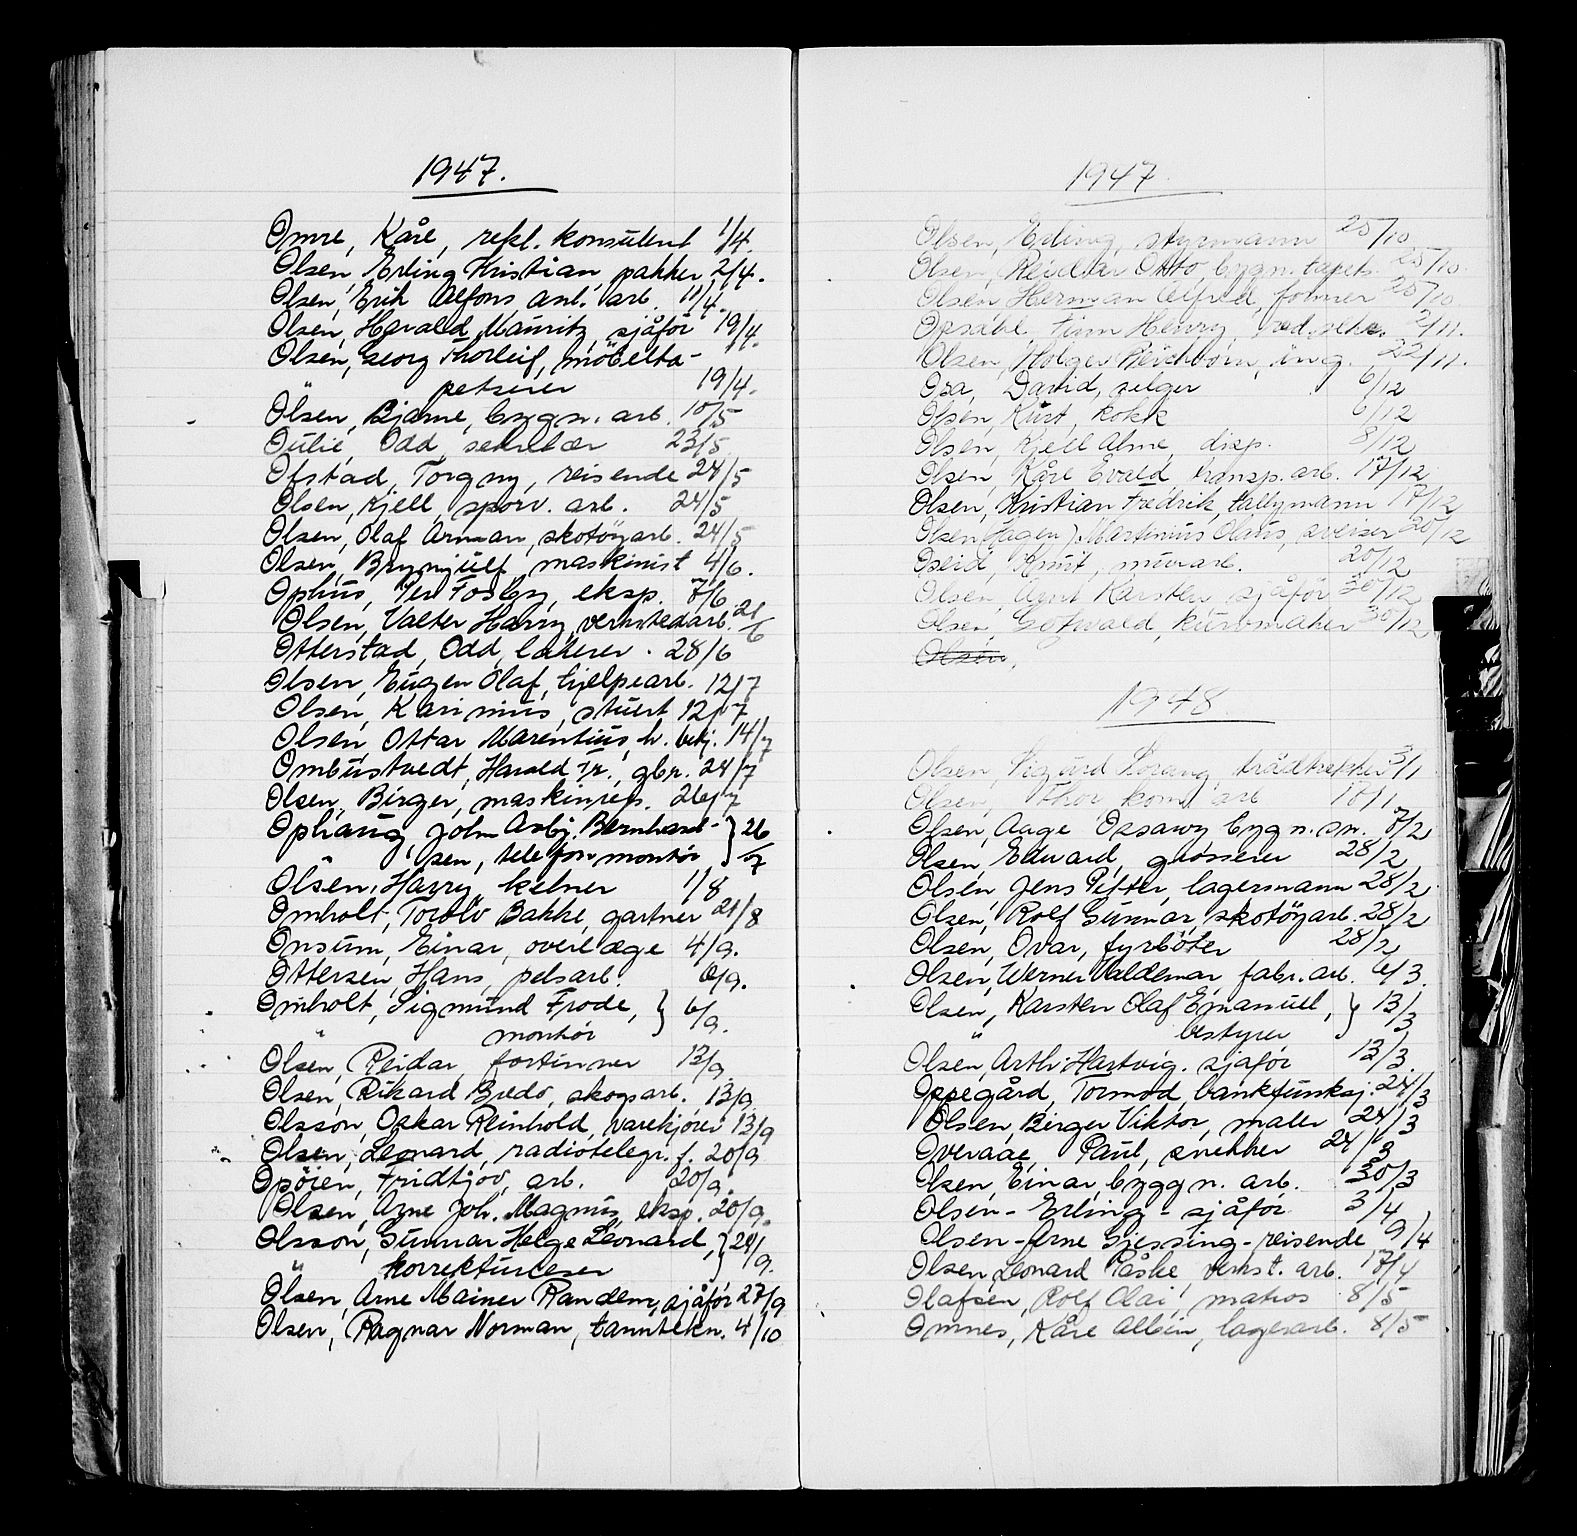 1947.
Omre, Kåre, rekl. konsulent 1/4.
Olsen, Erling Kristian, pakker 2/4.
Olsen, Erik Alfons anl. arb. 11/4.
Olsen, Harald Mauritz, sjåfør 19/4.
Olsen, Georg Thorleif, möbelta-
" petserer 19/4.
Olsen, Bjarne, bygn. arb. 10/5
Oulie, Odd, sekretær 23/5
Ofstad, Torgny, reisende 24/5
Olsen, Kjell, sporv. arb. 24/5
Olsen, Olaf Arman, skotöyarb. 24/5
Olsen, Brynjulf, maskinist 4/6.
Ophus, Per Fosby, eksp. 7/6
Olsen, Valter Harry, verkstedarb. 21/6
Otterstad, Odd, lakerer. 28/6
Olsen, Eugen Olaf, hjelpearb. 12/7
Olsen, Karinius, stuert 12/7
Olsen, Ottar Marentius, h. betj. 14/7
Ombustvedt, Harald Fr., gbr. 24/7
Olsen, Birger, maskinrep. 26/7
Ophaug, John Asbj. Bernhard- } 26/7
" sen, telefonmontör
Olsen, Harry, kelner 1/8
Omholt, Torolv Bakke, gartner 21/8
Onsum, Einar, overlæge 4/9.
Ottersen, Hans, pelsarb. 6/9.
Omholt, Sigmund Frode, } 6/9.
" montör
Olsen, Reidar, fortinner 13/9
Olsen, Rikard Bredo, skogsarb. 13/9
Olsson, Oskar Reinhold, varekjörer 13/9
Olsen, Leonard, radiotelegr. f. 20/9
Opöien, Fridtjov, arb. 20/9.
Olsen, Arne Joh. Magnus, eksp. 20/9.
Olsson, Gunnar Helge Leonard, } 24/9.
" korrekturleser
Olsen, Arne Mainer Randem, sjåför 27/9
Olsen, Ragnar Norman, tanntekn. 4/10
1947.
Olsen, Erling, styrmann 25/10
Olsen, Reidar Otto, bygn. tapets. 25/10.
Olsen, Herman Alfred, former 25/10
Opsahl, Finn Henry, red. sekr. 2/11.
Olsen, Holger Reichborn, ing. 22/11.
Osa, David, selger 6/12
Olsen, Kurt, kokk 6/12
Olsen, Kjell Arne, disp. 8/12
Olsen, Kåre Evald, transp. arb. 17/12
Olsen, Kristian Fredrik, tallymann 17/12
Olsen (Hagen), Martinius Olaus, sveiser 20/12
Oseid, Knut, murarb. 20/12
Olsen, Arnt Karsten, sjåför 30/12
Olsen, Gotwald, kurvmaker 30/12
Olsen,
1948
Olsen, Sigurd Lorang, trådtrekker 3/1
Olsen, Thor, kom. arb 10/1
Olsen, Aage Ossawy, bygn. sn. 7/2
Olsen, Edvard, grosserer 28/2
Olsen, Jens Petter, lagermann 28/2
Olsen, Rolf Gunnar, skotöyarb. 28/2
Olsen, Ovar, fyrböter 28/2
Olsen, Werner Valdemar, fabr. arb. 6/3
Olsen, Karsten Olaf Emanuel, } 13/3
" bestyrer
Olsen, Arth. Hartvig. sjåför 13/3.
Oppegård, Tormod, bankfunksj. 24/3
Olsen, Birger Viktor, maler 24/3
Overaae, Paul, snekker 24/3
Olsen, Einar, byggn. arb. 30/3
Olsen - Erling - sjåför 3/4
Olsen - Arne Gjessing - reisende 9/4
Olsen, Leonard Påske, verkst. arb. 17/4
Olafsen, Rolf Olai, matros 8/5
Omnes, Kåre Albin, lagerarb. 8/5